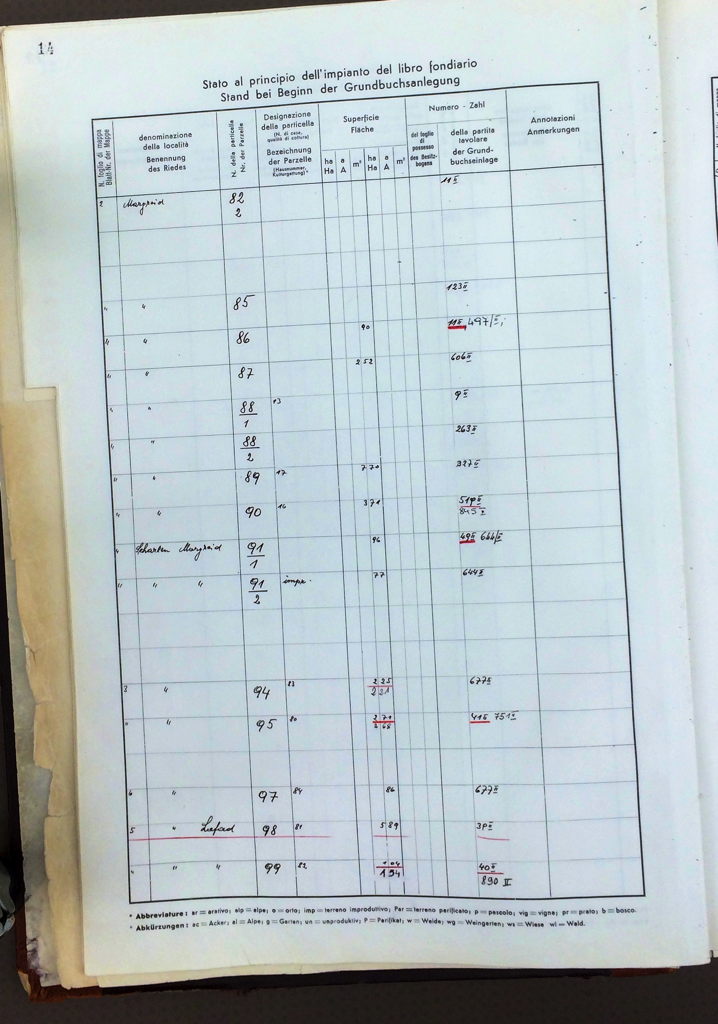 14
Stato al principio dell'impianto del libro fondiario
Stand bei Beginn der Grundbuchsanlegung
N. foglio di mappa
Blatt-Nr. der Mappe
denominazione
della località
Benennung
des Riedes
N. della particella
Nr. der Parzelle
Designazione
della particella
(N. di casa,
qualità di coltura)
Bezeichnung
der Parzelle
(Hausnummer,
Kulturgattung)*
Superficie
Fläche
ha a m² ha a m²
Ha A Ha A
Numero - Zahl
del foglio
di
possesso
des Besitz-
bogens
della partita
tavolare
der Grund-
buchseinlage
Annotazioni
Anmerkungen
2 Margreid 82/2 11 II
" " 85 123 II
" " 86 90 115 497/II;
" " 87 2 52 606 II
" " 88/1 13 9 II
" " 88/2 263 II
" " 89 17 7 70 327 II
" " 90 16 3 71 519 II
845 II
" Margreid 91/1 96 49 II 644/II
" " " 91/2 impr. 77 644 II
3 " 94 83 2 25 677 II
2 21
" " 95 80 2 71 41 II 751 II
2 68
4 " 97 84 86 677 II
5 " 98 81 5 89 39 II
" " " 99 82 1 04 40 II
1 94 890 II
* Abbreviature: ar = arativo; alp = alpe; o = orto; imp = terreno improduttivo; Par = terreno parificato; p = pascolo; vig = vigne; pr = prato; b = bosco.
* Abkürzungen: ac = Acker; al = Alpe; g = Garten; un = unproduktiv; P = Parifikat; w = Weide; wg = Weingarten; ws = Wiese wl = Wald.